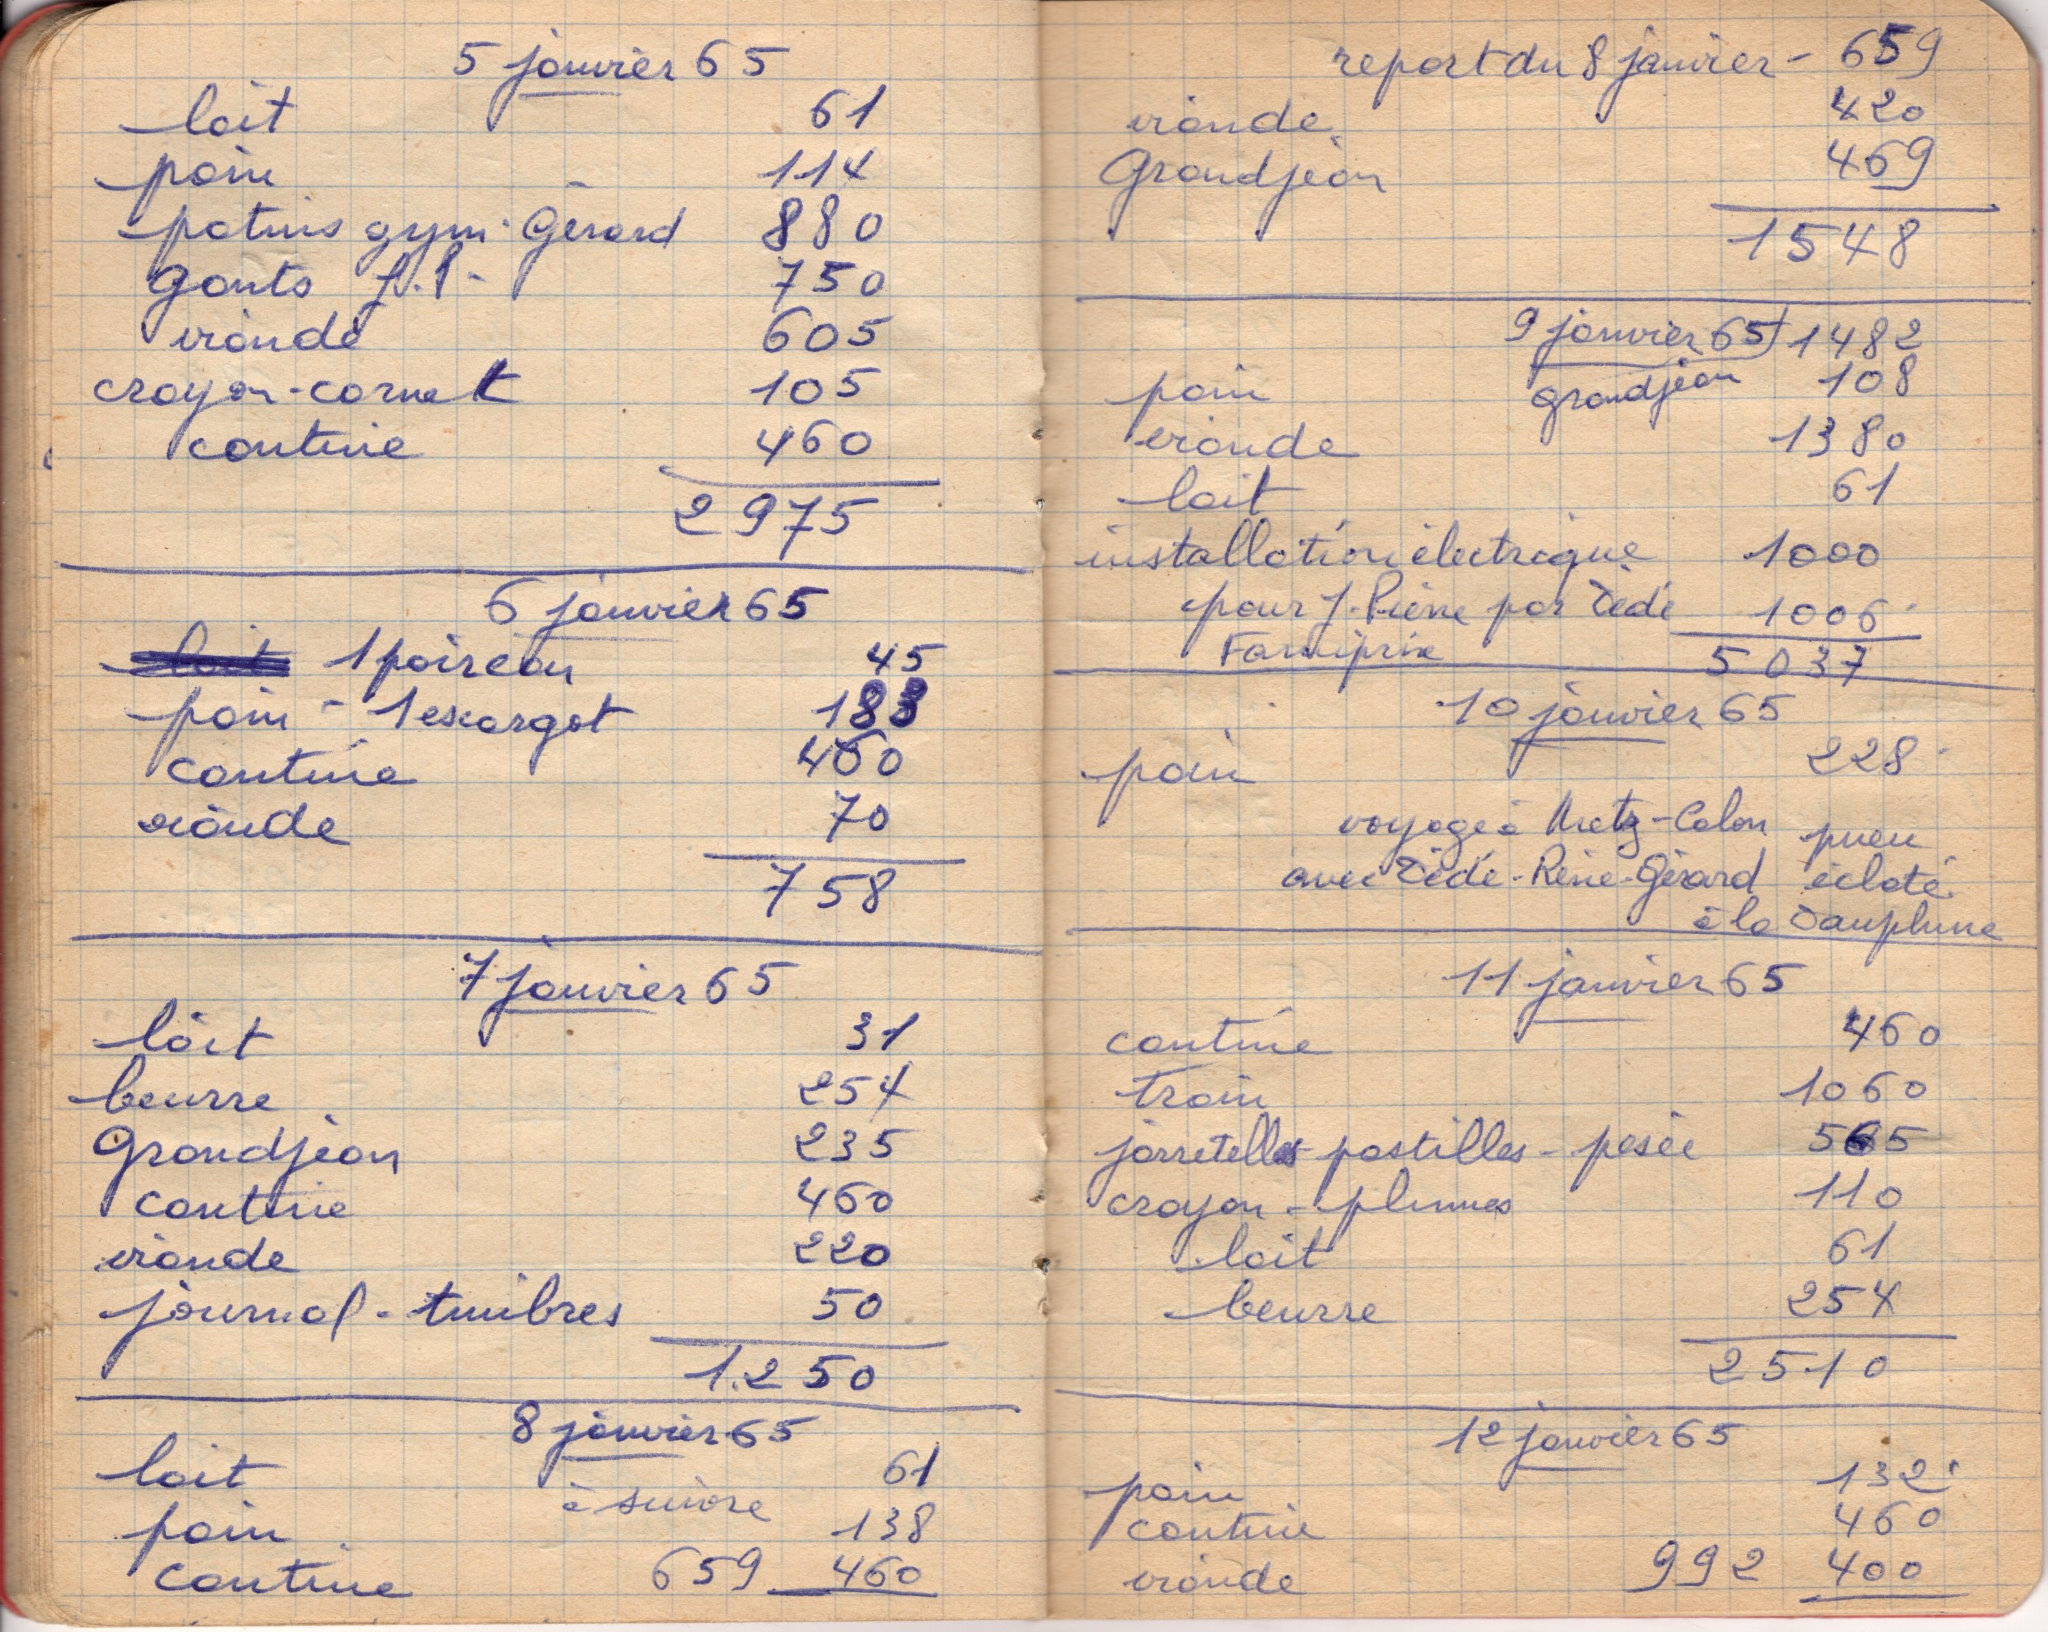 5 janvier 65
lait 61
pain 114
patins gym. Gérard 880
gants J.P. 750
viande 605
crayon-carnet 105
cantine 460
2975
6 janvier 65
1 poireau 45
pain - 1 escargot 183
cantine 460
viande 70
758
7 janvier 65
lait 31
beurre 254
Grandjean 235
cantine 460
viande 220
journal - timbres 50
1.250
8 janvier 65
lait 61
à suivre
pain 138
cantine 659 460
report du 8 janvier - 659
viande 420
Grandjean 469
1548
9 janvier 65 1482
grandjean
pain 108
viande 1380
lait 61
installation électrique 1000
pour J. Pierre par Dédé 1006
Familiprix 5037
10 janvier 65
pain 228
voyage à Metz - Calon pneu
avec Dédé - René - Gérard éclaté
à la Dauphine
11 janvier 65
cantine 460
train 1060
jarretelles - pastilles - pesée 565
crayon - plumes 110
lait 61
beurre 254
2510
12 janvier 65
pain 132
cantine 460
viande 992 400